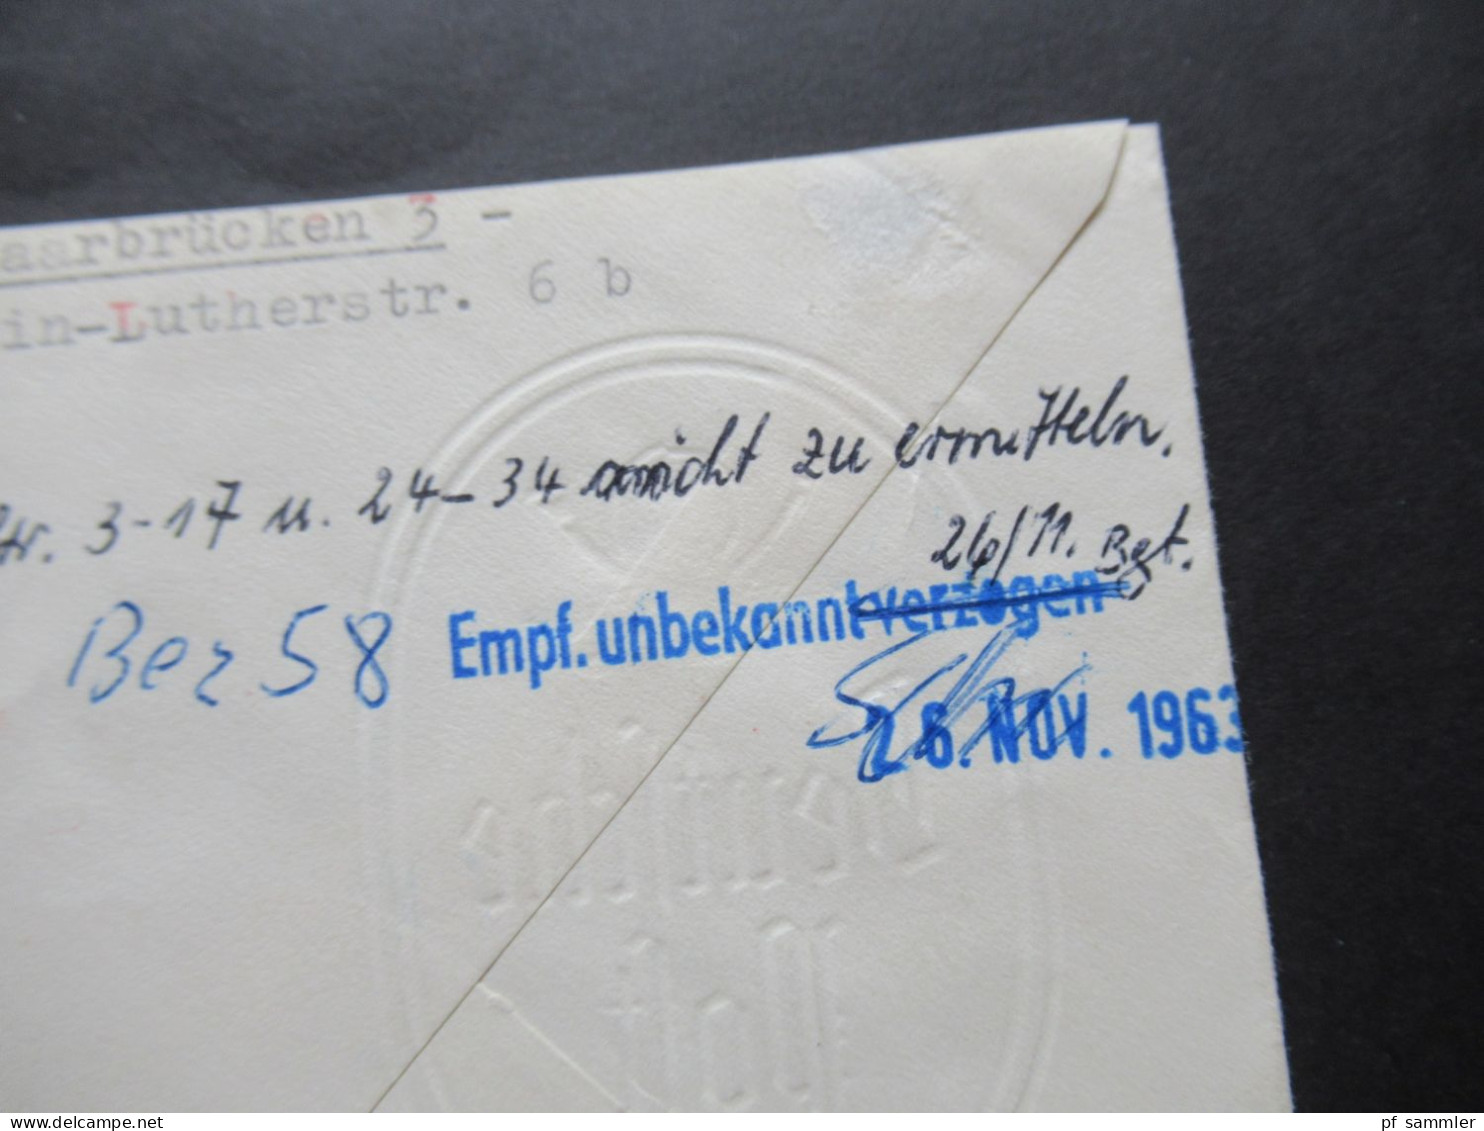 aarbrücken 3 -
in-Lutherstr. 6 b
str. 3-17 u. 24-34 nicht zu ermitteln.
26/11. Bgt.
Bez 58
Empf. unbekannt verzogen
26. NOV. 1963
Deutsche
Post
pf sammler